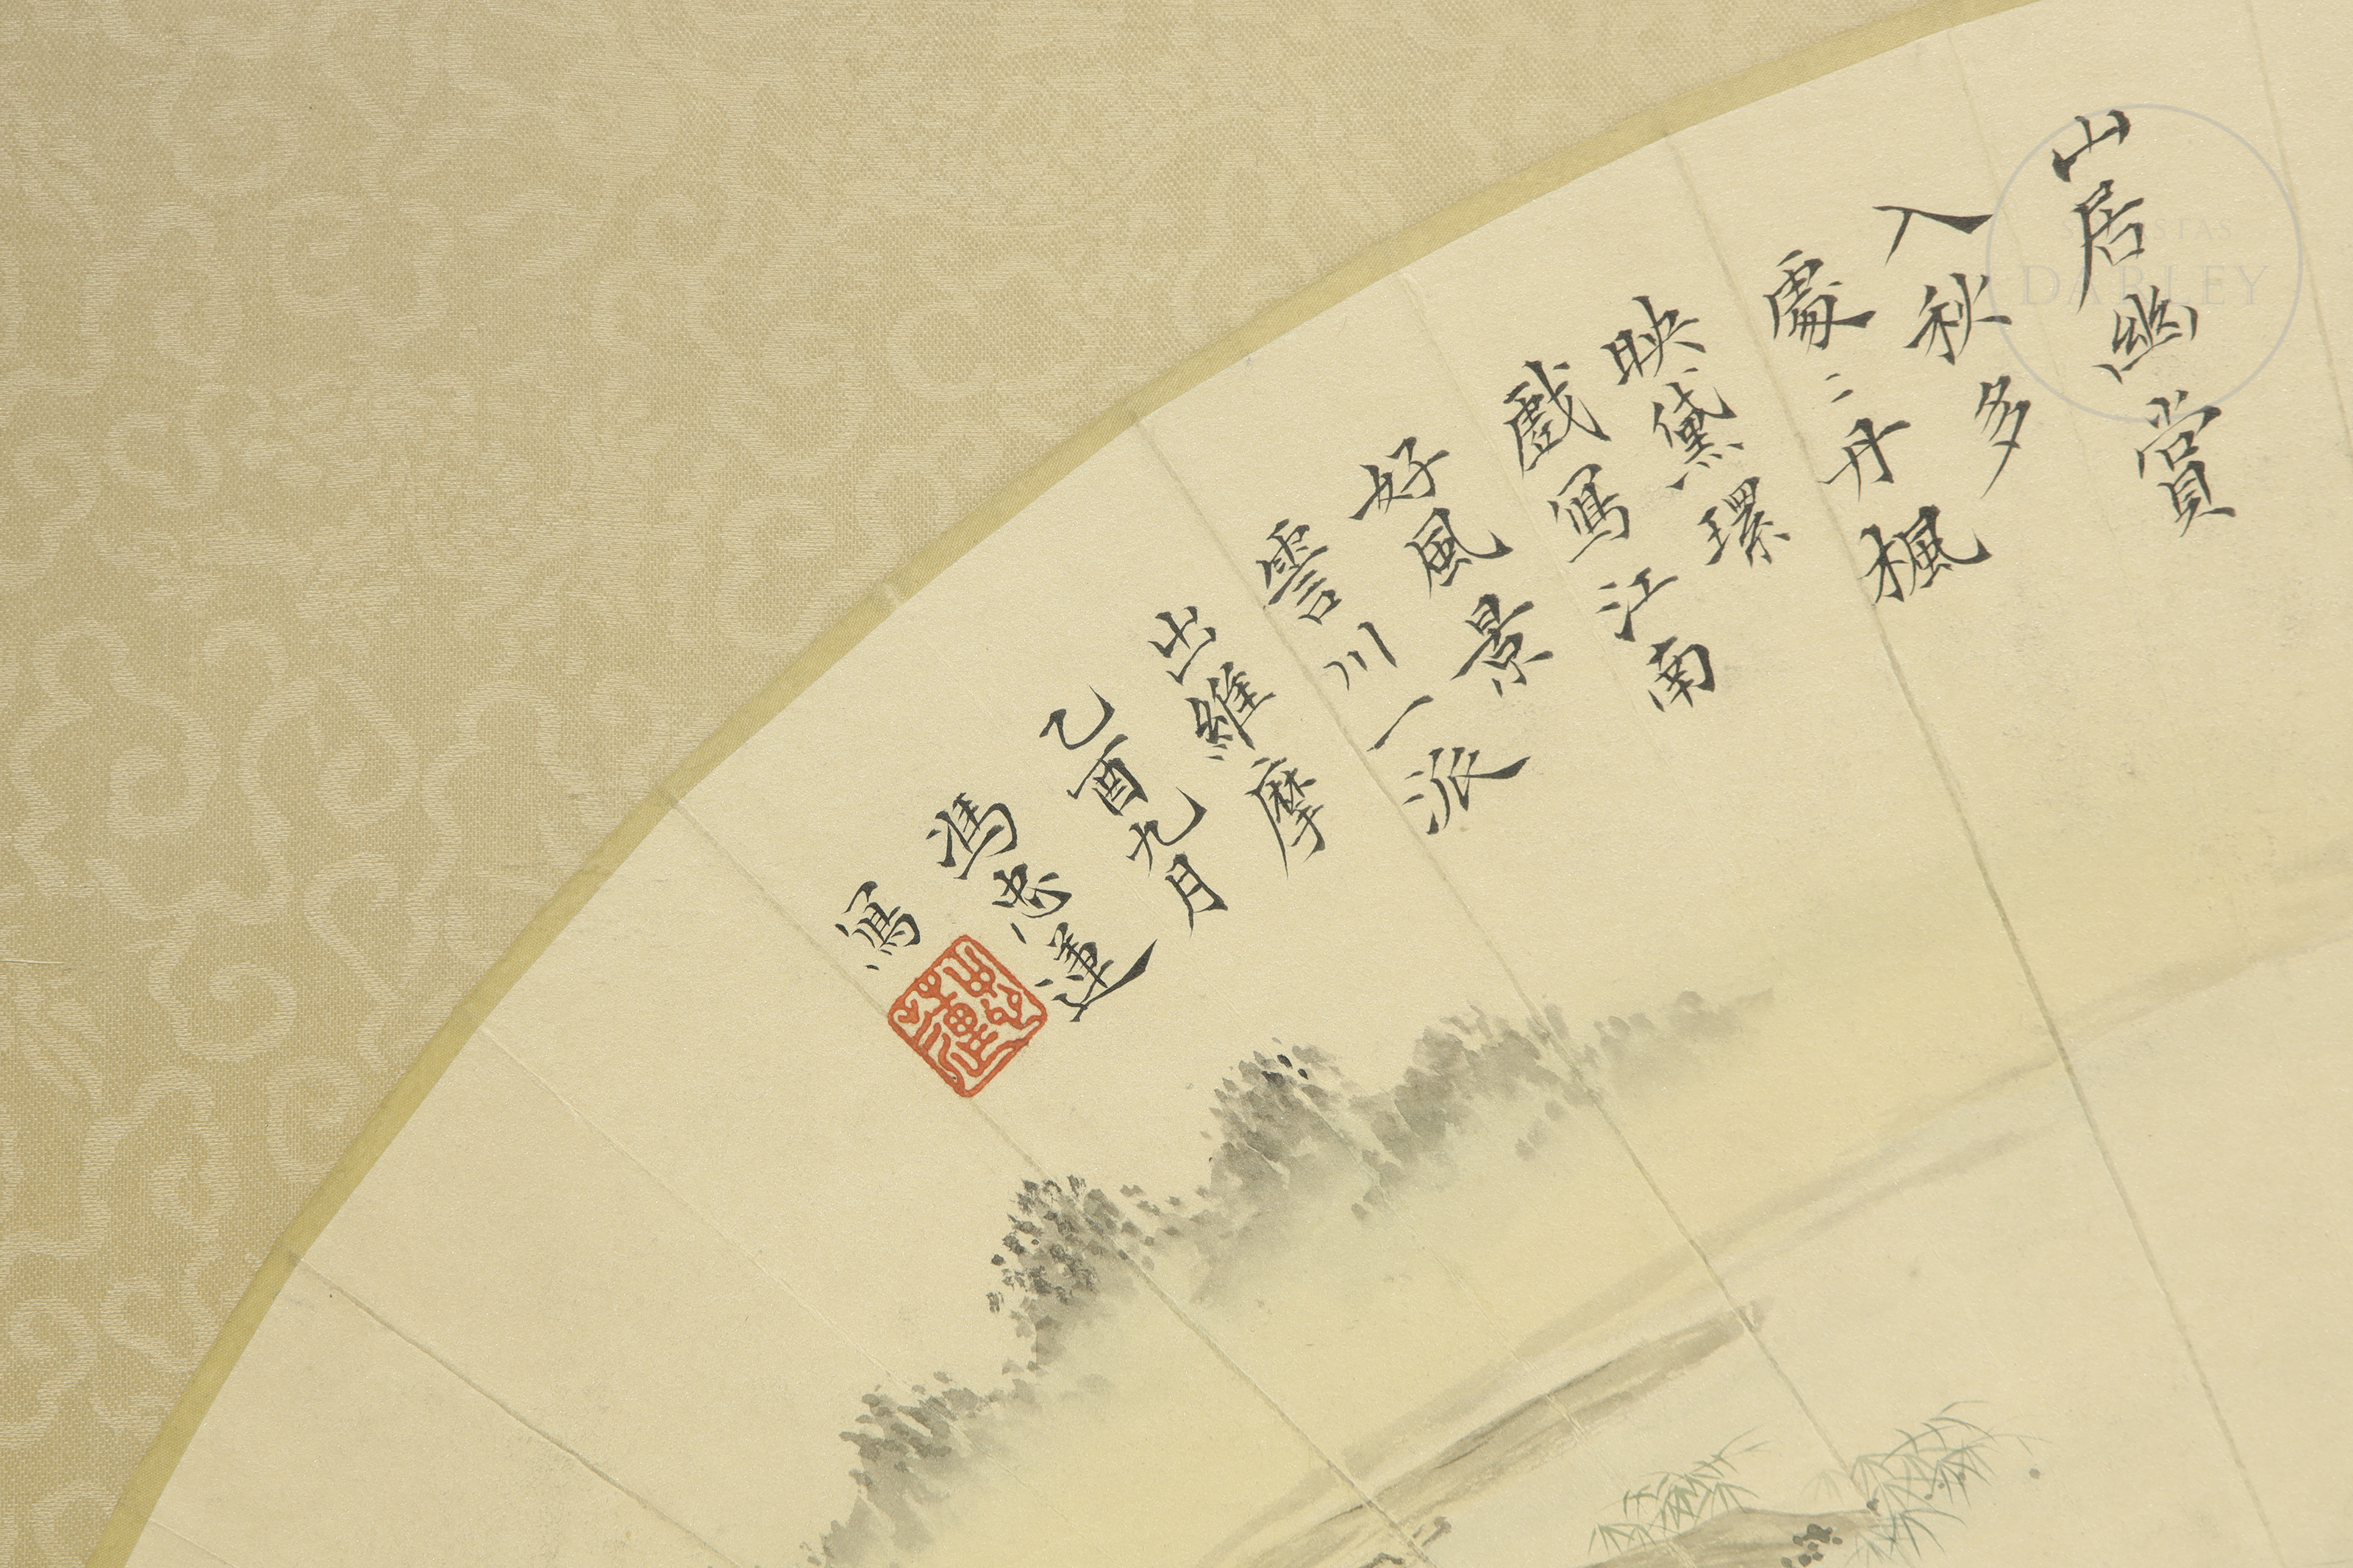 山居幽賞
入秋多
處〻丹楓
映黛環
戲寫江南
好風景
霅川一派
出維摩
己酉九月
馮忠蓮
寫
SUBASTAS
DARLEY